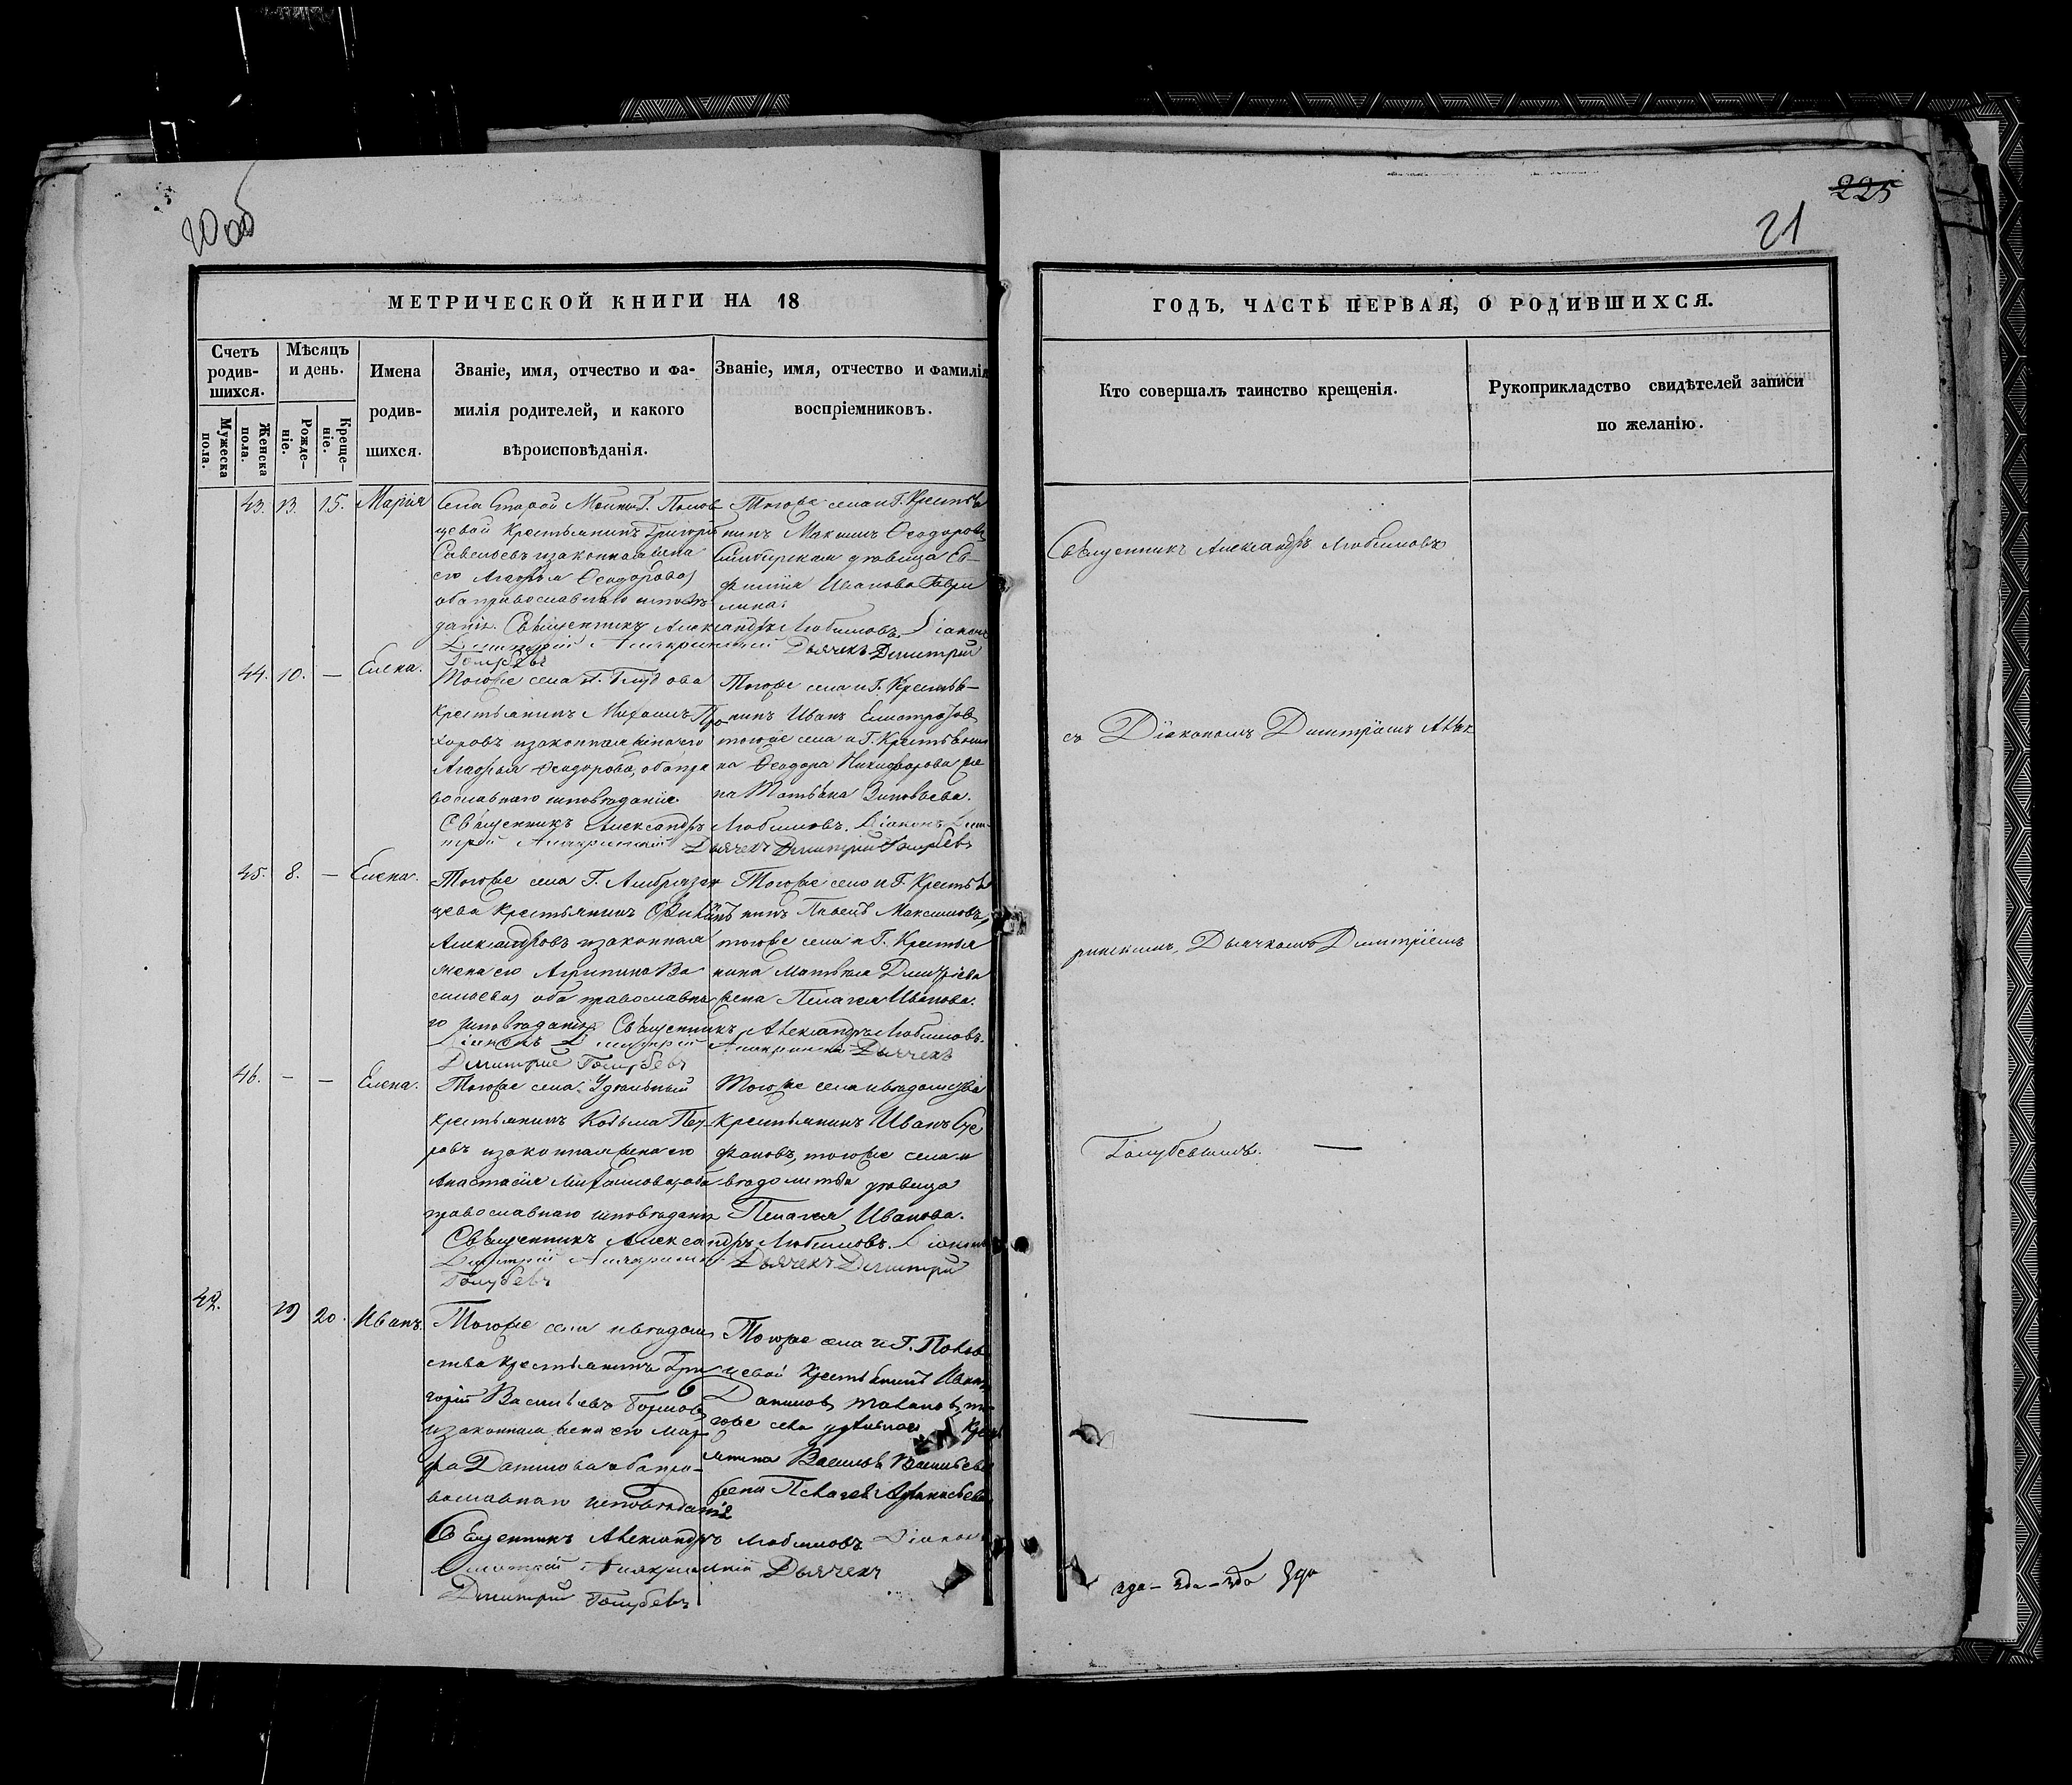 20 об
225
21
МЕТРИЧЕСКОЙ КНИГИ НА 18
ГОДЪ, ЧАСТЬ ПЕРВАЯ, О РОДИВШИХСЯ.
Счетъ родив-шихся.
Мужеска пола.
Женска пола.
Мѣсяцъ и день.
Рожде-ніе.
Креще-ніе.
Имена
родив-
шихся.
Званіе, имя, отчество и фа-
милія родителей, и какого
вѣроисповѣданія.
Званіе, имя, отчество и фамилія
воспріемниковъ.
Кто совершалъ таинство крещенія.
Рукоприкладство свидѣтелей записи
по желанію.
43. 13. 15. Марія
Села Старой Майны Г.
цевой Крестьянинъ Григорій
Савельевъ и законная жена
его Агафья Ѳеодорова,
оба православнаго исповѣ-
данія. Священникъ Александръ Любимовъ Діаконъ
Димитрій Дьячекъ Димитрій
Голубевъ
Тогоже села и Г. Крестья
нинъ Максимъ Ѳеодоровъ,
Симбирская дѣвица Ев-
фимія Иванова Гаври
лина.
44. 10. — Елена.
Тогоже села Г.
Крестьянинъ Михаилъ Про
хоровъ и законная жена его
Агафья Ѳеодорова, оба пра
вославнаго исповѣданія.
Священникъ Александръ Любимовъ. Діаконъ Дими
трій Дьячекъ Димитрій Голубевъ
Тогоже села и Г. Крестья-
нинъ Иванъ
тогоже села и Г. Крестьяни
на Ѳеодора Никифорова же
на Татьяна Зиновьева.
45. 8. — Елена.
Тогоже села Г. Амбразан
цева Крестьянинъ
Александровъ и законная
жена его Агрипина Ва
сильева, оба православна
го исповѣданія. Священникъ Александръ Любимовъ.
Діаконъ Димитрій Дьячекъ
Димитрій Голубевъ
Тогоже села и Г. Крестья
нинъ Павелъ Максимовъ,
тогоже села и Г. Крестья
нина Матвѣя Димитріева
жена Пелагея Иванова.
46. — — Елена.
Тогоже села Удѣльный
Крестьянинъ Козьма Пет
ровъ и законная жена его
Анастасія Михайлова, оба
православнаго исповѣданія
Священникъ Александръ Любимовъ. Діаконъ
Димитрій Дьячекъ Димитрій
Голубевъ
Тогоже села и вѣдомства
Крестьянинъ Иванъ Сте
фановъ, тогоже села и
вѣдомства дѣвица
Пелагея Иванова.
42. 19 20. Иванъ.
Тогоже села и вѣдом
ства Крестьянинъ Гри
горій Васильевъ
и законная жена его Мар
фа Данилова, оба пра-
вославнаго исповѣданія
Священникъ Александръ Любимовъ Діаконъ
Димитрій Дьячекъ
Димитрій Голубевъ
Тогоже села и Г.
цевой Крестьянинъ Иванъ
Даниловъ
гоже села удѣльнаго Крес
янина Василья Васильева
жена Пелагея Афанасьева
Священникъ Александръ Любимовъ
съ Діакономъ Димитріемъ
Дьячкомъ Димитріемъ
Голубевымъ. —
—